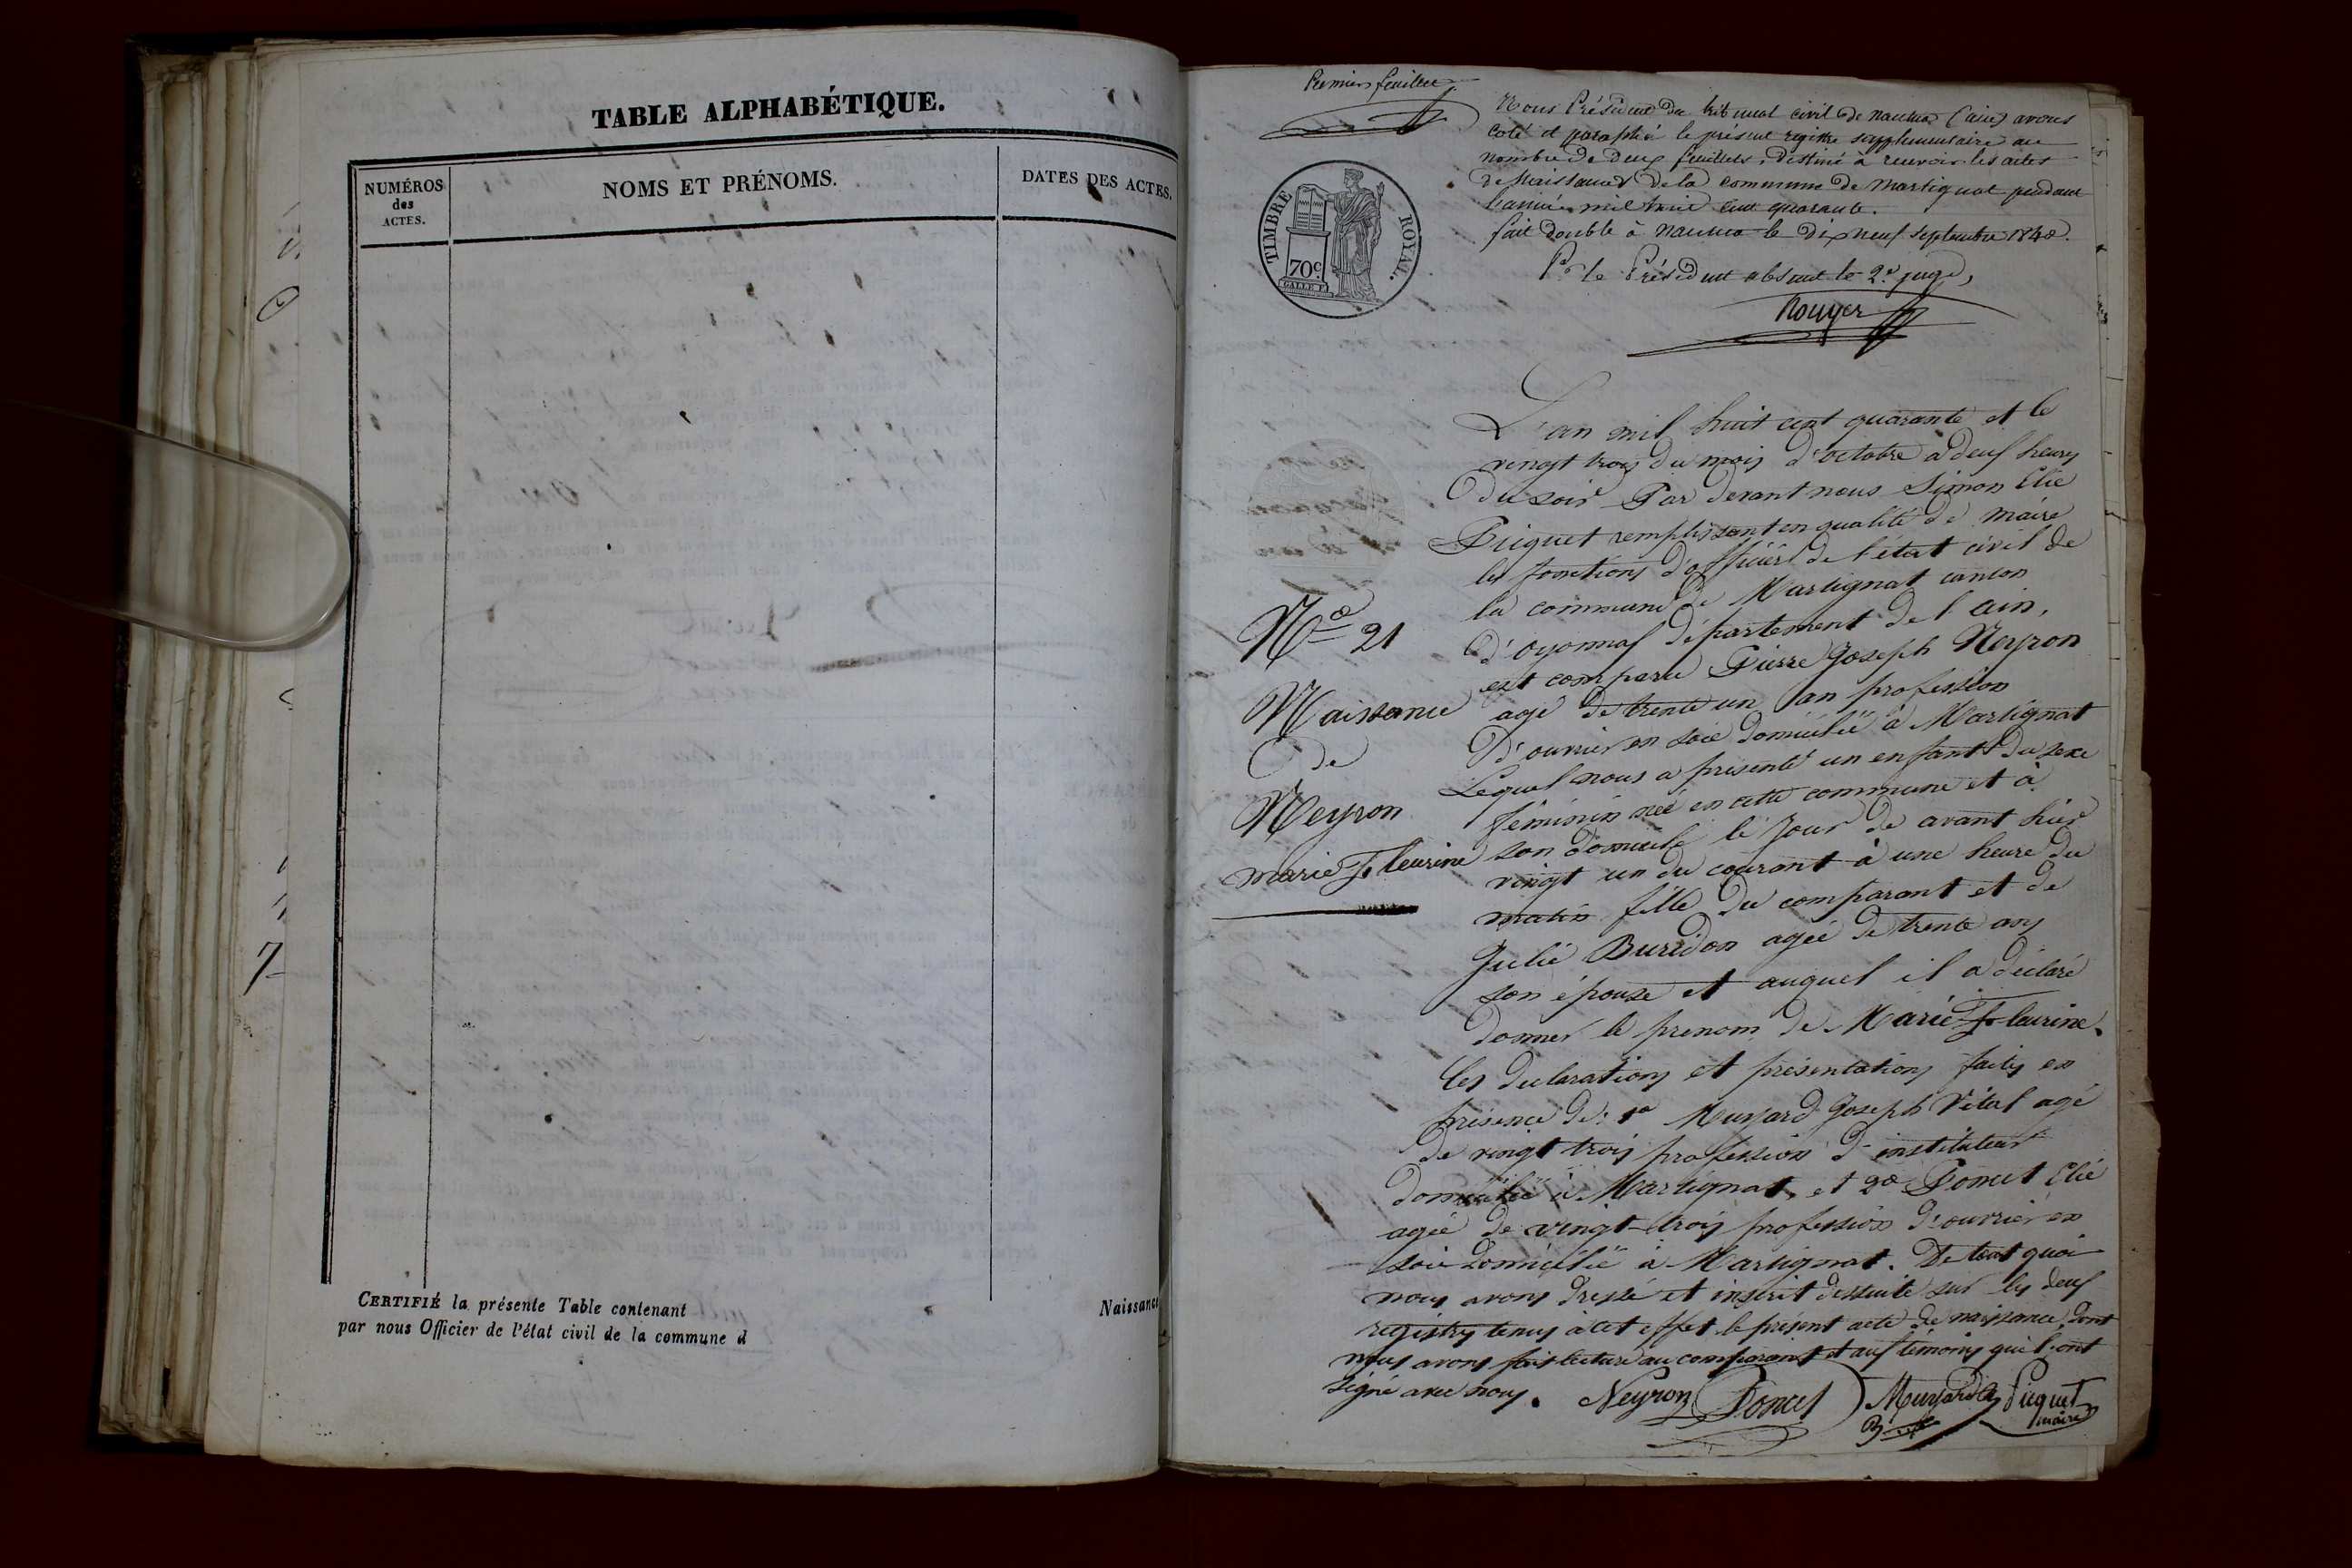 TABLE ALPHABÉTIQUE.
NUMÉROS
des
ACTES.
NOMS ET PRÉNOMS.
DATES DES ACTES.
CERTIFIÉ la présente Table contenant
par nous Officier de l'état civil de la commune d
Naissance
Premier feuillet
Nous Président du tribunal civil de nantua (ain) avons
coté et paraphé le présent registre supplémentaire au
nombre de deux feuillets, destiné à recevoir les actes
de Naissances de la commune de Martignat pendant
l'année mil huit cent quarante.
fait double à nantua le dix neuf septembre 1840.
Pr le Président absent le 2e juge,
Rouyer
TIMBRE ROYAL.
70c.
GALLE F.
L'an mil huit cent quarante et le
vingt trois du mois d'octobre à deux heures
du soir Par devant nous Simon Elie
Picquet remplissant en qualité de maire
les fonctions d'officier de l'état civil de
la commune de Martignat canton
d'oyonnax département de l'ain,
est comparu Pierre Joseph Neyron
agé de trente un an profession
d'ouvrier en soie domicilié à Martignat
Lequel nous a présenté un enfant du sexe
féminin née en cette commune et à
son domicile le jour de avant hier
vingt un du courant à une heure du
matin fille du comparant et de
Julie Buridon agée de trente ans
son épouse et auquel il a déclaré
donner le prenom de Marie Fleurine.
Les déclarations et présentations faites en
présence de: 1o Musard Joseph Vital agé
de vingt trois profession d'instituteur
domicilié à Martignat, et 2o Poncet Elie
agée de vingt-trois profession d'ouvrier en
soie domicilié à Martignat. De tout quoi
nous avons dressé et inscrit dessuite sur les deux
registres tenus à cet effet le present acte de naissance, dont
nous avons fait lecture au comparant et aux témoins qui l'ont
signé avec nous.
Neyron Poncet Picquet
maire
No 21
Naissance
de
Neyron
marie Fleurine